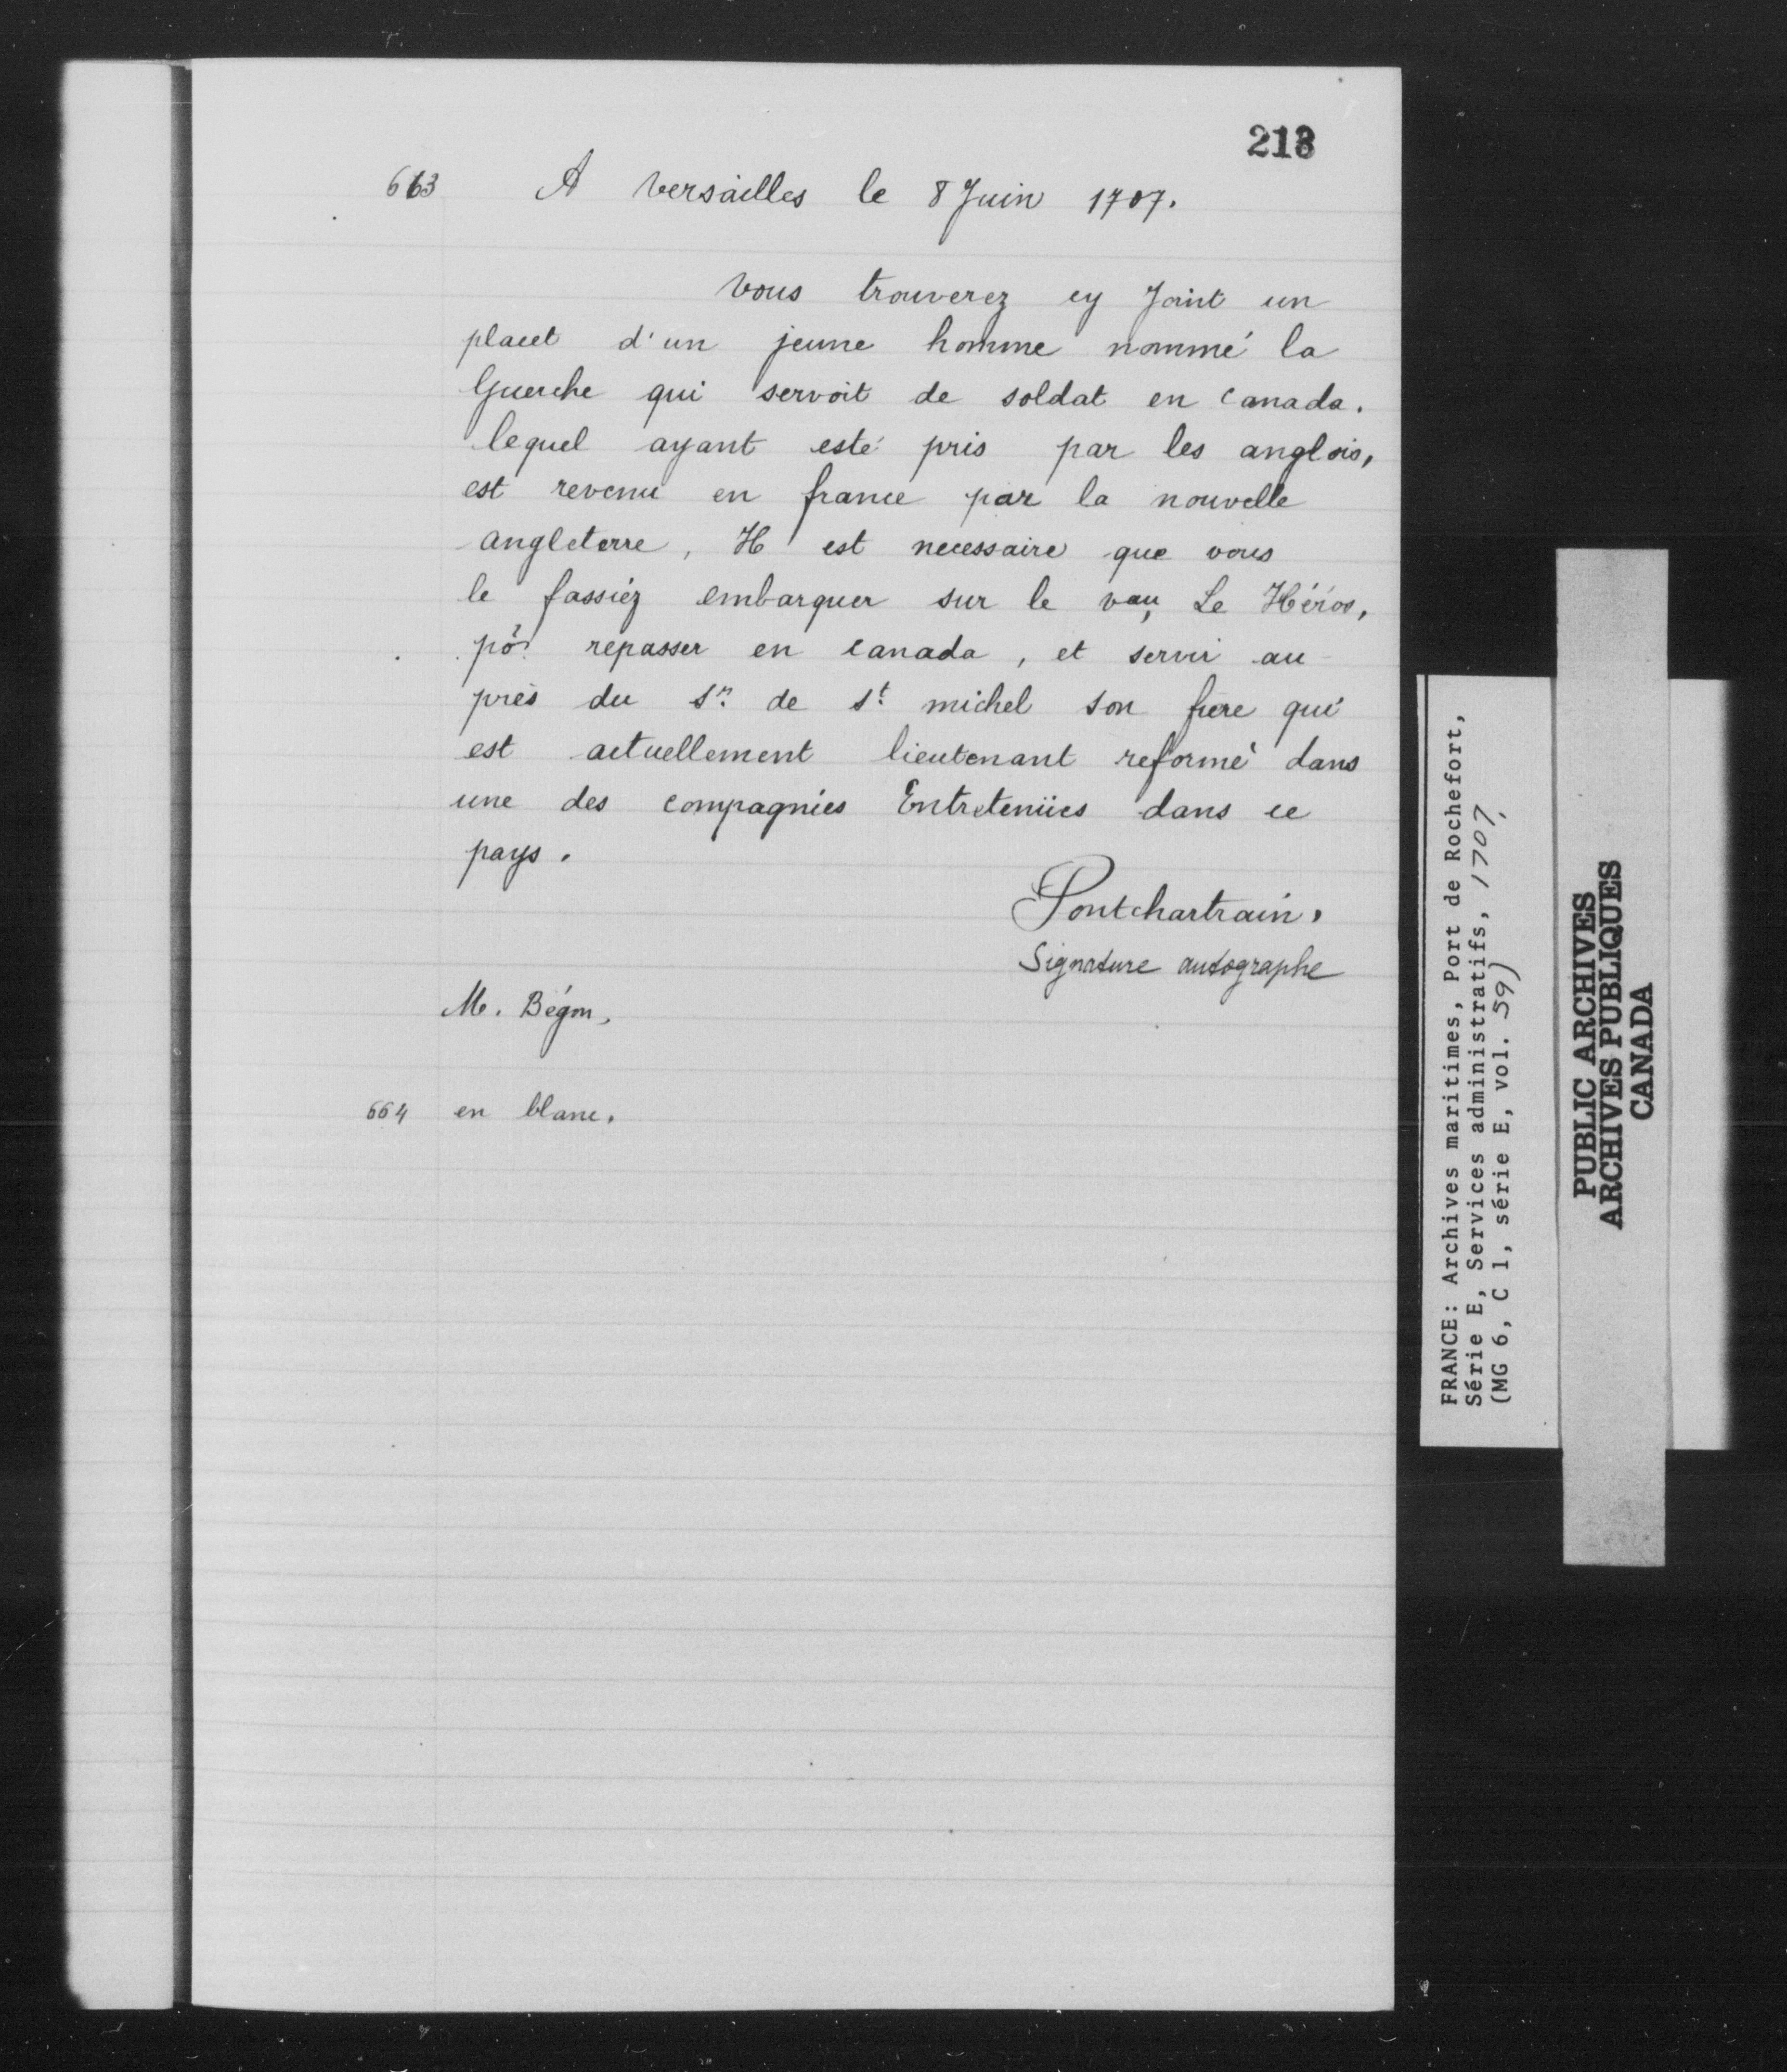 213
663 A Versailles le 8 Juin 1707.
Vous trouverez cy Joint un
placet d'un jeune homme nommé la
Guerche qui servoit de soldat en Canada.
lequel ayant esté pris par les anglois,
est revenu en france par la nouvelle
angleterre, Il est necessaire que vous
le fassiéz embarquer sur le vau, Le Héros,
po.r repasser en Canada, et servir au
près du S.r de S.t michel son frere qui
est actuellement lieutenant reformé dans
une des compagnies Entretenües dans ce
pays.
Pontchartrain,
Signature autographe
M. Bégon,
664 en blanc.
FRANCE: Archives maritimes, Port de Rochefort,
Série E, Services administratifs, 1707,
(MG 6, C 1, série E, vol. 59)
PUBLIC ARCHIVES
ARCHIVES PUBLIQUES
CANADA